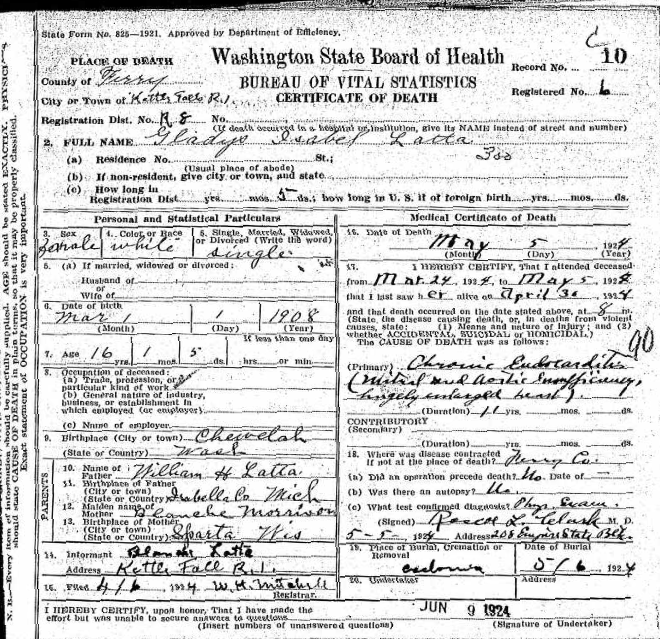 State Form No. 825—1921. Approved by Department of Efficiency.
PLACE OF DEATH
Washington State Board of Health
Record No. 10
County of Ferry
BUREAU OF VITAL STATISTICS
Registered No. 6
City or Town of Kettle Fall R.1.
CERTIFICATE OF DEATH
Registration Dist. No. R 8 No.
(If death occurred in a hospital or institution, give its NAME instead of street and number)
2. FULL NAME Gladys Isabel Latta
(a) Residence No. St.;
(Usual place of abode)
(b) If non-resident, give city or town, and state
(c) How long in
Registration Dist. yrs. mos. 5 ds.; how long in U. S. if of foreign birth yrs. mos. ds.
Personal and Statistical Particulars
3. Sex 4. Color or Race 5. Single, Married, Widowed, or Divorced (Write the word)
Female white single
5. (a) If married, widowed or divorced:
Husband of
or
Wife of
6. Date of birth
Mar 1 1 1908
(Month) (Day) (Year)
If less than one day
7. Age 16 yrs. 1 mos. 5 ds. hrs. or min.
8. Occupation of deceased:
(a) Trade, profession, or
particular kind of work
(b) General nature of industry,
business, or establishment in
which employed (or employer)
(c) Name of employer
9. Birthplace (City or town) Chewelah
(State or Country) Wash
PARENTS
10. Name of Father William H Latta
11. Birthplace of Father
(City or town)
(State or Country) Isabella Co Mich
12. Maiden name of Mother Blanche Morrison
13. Birthplace of Mother
(City or town)
(State or Country) Sparta Wis
14. Informant Blanche Latta
Address Kettle Fall R.1.
15. Filed 1924 W. H. Mitchell
Registrar.
Medical Certificate of Death
16. Date of Death
May 5 1924
(Month) (Day) (Year)
17. I HEREBY CERTIFY, That I attended deceased
from Mar 24 1924 to May 5 1924
that I last saw her alive on April 30 1924
and that death occurred on the date stated above, at 8 m.
(State, the disease causing death, or, in deaths from violent
causes, state: (1) Means and nature of injury; and (2)
whether ACCIDENTAL, SUICIDAL or HOMICIDAL.)
The CAUSE OF DEATH was as follows:
90
(Primary) Chronic Endocarditis
(Mitral and Aortic Insufficiency,
hugely enlarged heart).
(Duration) 11 yrs. mos. ds.
CONTRIBUTORY
(Secondary)
(Duration) yrs. mos. ds.
18. Where was disease contracted
If not at the place of death? Ferry Co.
(a) Did an operation precede death? No. Date of
(b) Was there an autopsy? No.
(c) What test confirmed diagnosis? Phys. Exam.
(Signed) Roscoe L. Clark M. D.
5-5- 1924 Address 208 Empire State Bldg
19. Place of Burial, Cremation or Removal
Date of Burial
5/6 1924
20. Undertaker
Address
I HEREBY CERTIFY, upon honor, That I have made the
effort but was unable to secure answers to questions
(Insert numbers of unanswered questions)
JUN 9 1924
(Signature of Undertaker)
N. B.—Every item of information should be carefully supplied. AGE should be stated EXACTLY. PHYSICIANS
should state CAUSE OF DEATH in plain terms, so that it may be properly classified.
Exact statement of OCCUPATION is very important.